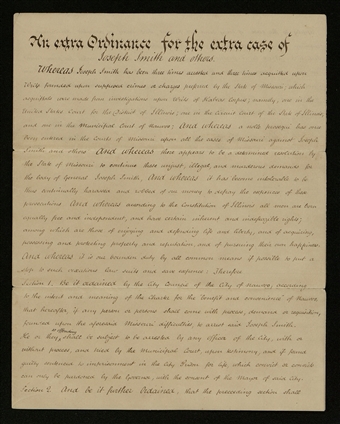 An extra Ordinance for the extra case of
Joseph Smith and others.
Whereas Joseph Smith has been three times arrested and three times acquitted upon
Writs founded upon supposed crimes or charges preferred by the State of Missouri, which
acquittals were made from investigations upon Writs of Habeas Corpus; namely, one in the
United States Court for the District of Illinois; one in the Circuit Court of the State of Illinois;
and one in the Municipal Court of Nauvoo; And whereas a nolle prosequi has once
been entered in the Courts of Missouri upon all the cases of Missouri against Joseph
Smith and others. And whereas there appears to be a determined resolution by
the State of Missouri to continue these unjust, illegal, and murderous demands for
the body of General Joseph Smith; And whereas it has become intolerable to be
thus continually harassed and robbed of our money to defray the expenses of this
prosecution; And whereas according to the Constitution of Illinois all men are born
equally free and independent, and have certain inherent and indefeasible rights;
among which are those of enjoying and defending life and liberty, and of acquiring,
possessing and protecting property and reputation, and of pursuing their own happiness.
And whereas it is our bounden duty by all common means if possible to put a
stop to such vexatious law suits and save expense; Therefore
Section 1. Be it ordained by the City Council of the City of Nauvoo, according
to the intent and meaning of the Charter for the benefit and convenience of Nauvoo
that hereafter if any person or persons shall come with process, demand, or requisition,
founded upon the aforesaid Missouri difficulties to arrest said Joseph Smith,
he or they so offending shall be subject to be arrested by any officer of the City, with or
without process, and tried by the Municipal Court, upon testimony, and if found
guilty sentenced to imprisonment in the City Prison for life, which convict or convicts
can only be pardoned by the Governor, with the consent of the Mayor of said City.
Section 2. And be it further Ordained, that the preceding section shall